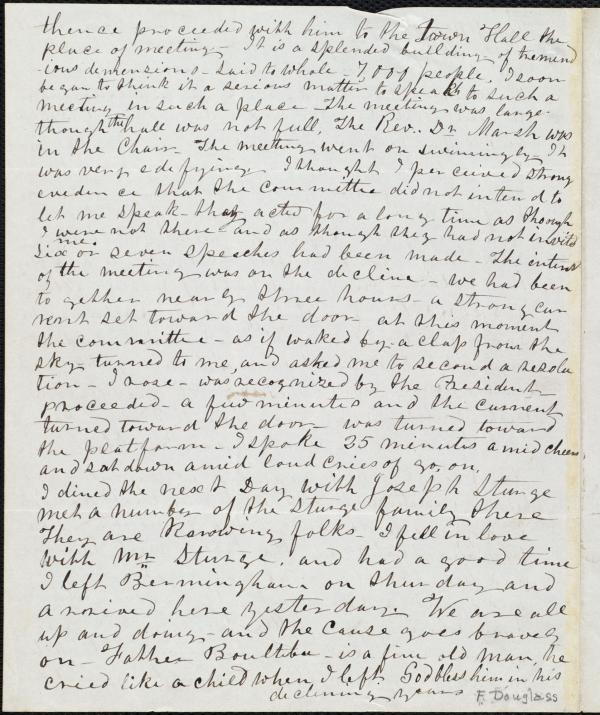 thence proceeded with him to the Town Hall the
place of meeting - It is a splended building of tremend
-ious demensions - said to whole 7,000 people, I soon
began to think it a serious matter to speak to such a
meeting in such a place - The meeting was large -
though the hall was not full, The Rev. Dr. Marsh was
in the Chair - The meeting went on swimingly It
was very edifying. I thought I perceived strong
evedence that the committee did not intend to
let me speak - they acted for a long time as though
I were not there and as though they had not invited
me.
six or seven speeches had been made - The interest
of the meeting was on the decline - we had been
to gether nearly three hours - a strong cur
rent set toward the door - at this moment
the committee - as if waked by a clap from the
sky turned to me, and asked me to second a resolu
tion - I rose - was recognized by the President
proceeded - a few minutes and the current
turned toward the door - was turned toward
the platform - I spoke 25 minutes amid cheers
and sat down amid loud cries of go, on,
I dined the next Day with Joseph Sturge
met a number of the Sturge family there
They are Knowing folks - I fell in love
with Mr Sturge, and had a good time
I left Bermingham on thursday and
arrived here yesterday. We are all
up and doing - and the cause goes bravely
on - Father Boultbee - is a fine old man, he
cried like a child when I left God bless him in his
declining years F. Douglass